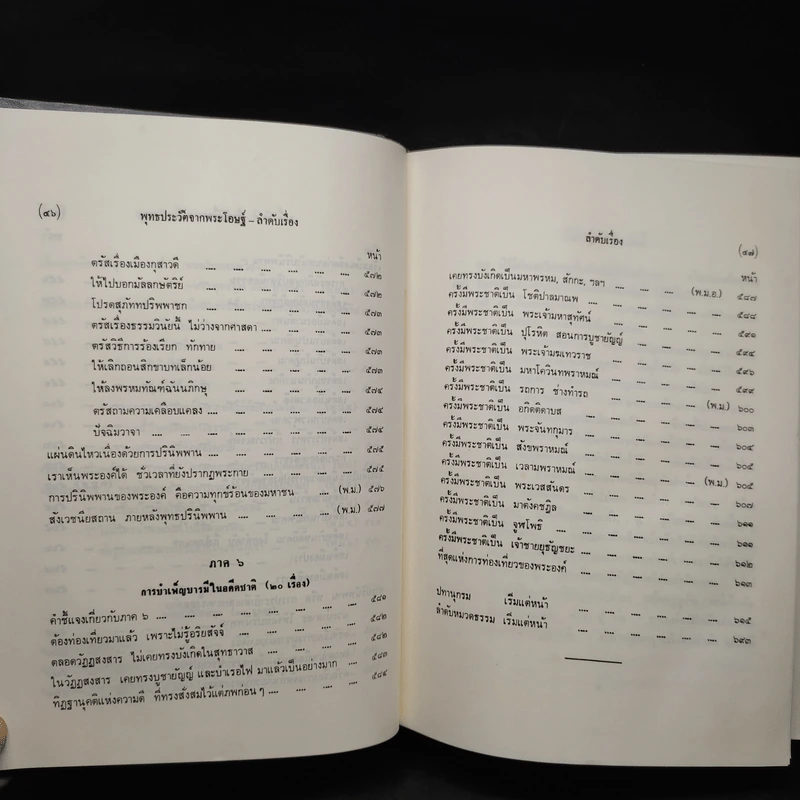 (๔๖)
พุทธประวัติจากพระโอษฐ์ – ลำดับเรื่อง
หน้า
ตรัสเรื่องเมืองกุสาวดี .... .... .... .... .... .... ๕๗๒
ให้ไปบอกมัลลกษัตริย์ .... .... .... .... .... .... ๕๗๒
โปรดสุภัททปริพพาชก .... .... .... .... .... .... ๕๗๓
ตรัสเรื่องธรรมวินัยนี้ ไม่ว่างจากศาสดา .... .... .... .... ๕๗๓
ตรัสวิธีการร้องเรียก ทักทาย .... .... .... .... .... ๕๗๓
ให้เลิกถอนสิกขาบทเล็กน้อย .... .... .... .... .... ๕๗๓
ให้ลงพรหมทัณฑ์ฉันนภิกษุ .... .... .... .... .... ๕๗๔
ตรัสถามความเคลือบแคลง .... .... .... .... .... ๕๗๔
ปัจฉิมวาจา .... .... .... .... .... .... .... ๕๗๔
แผ่นดินไหวเนื่องด้วยการปรินิพพาน .... .... .... .... .... ๕๗๕
เราเห็นพระองค์ได้ ชั่วเวลาที่ยังปรากฏพระกาย .... .... .... .... ๕๗๕
การปรินิพพานของพระองค์ คือความทุกข์ร้อนของมหาชน .... (พ.ม.) ๕๗๖
สังเวชนียสถาน ภายหลังพุทธปรินิพพาน .... .... .... (พ.ม.) ๕๗๗
ภาค ๖
การบำเพ็ญบารมีในอดีตชาติ (๒๐ เรื่อง)
คำชี้แจงเกี่ยวกับภาค ๖ .... .... .... .... .... .... ๕๘๑
ต้องท่องเที่ยวมาแล้ว เพราะไม่รู้อริยสัจจ์ .... .... .... .... ๕๘๒
ตลอดวัฏฏสงสาร ไม่เคยทรงบังเกิดในสุทธาวาส .... .... .... .... ๕๘๒
ในวัฏฏสงสาร เคยทรงบูชายัญญ์ และบำเรอไฟ มาแล้วเป็นอย่างมาก .... .... ๕๘๓
ทิฏฐานุคติแห่งความดี ที่ทรงสั่งสมไว้แต่ภพก่อน ๆ .... .... .... .... ๕๘๔
ลำดับเรื่อง
(๔๗)
หน้า
เคยทรงบังเกิดเป็นมหาพรหม, สักกะ, ฯลฯ .... .... .... (พ.ม.อ.) ๕๘๗
ครั้งมีพระชาติเป็น โชติปาลมาณพ .... .... .... .... .... ๕๘๘
ครั้งมีพระชาติเป็น พระเจ้ามหาสุทัศน์ .... .... .... .... ๕๙๑
ครั้งมีพระชาติเป็น ปุโรหิต สอนการบูชายัญญ์ .... .... .... ๕๙๔
ครั้งมีพระชาติเป็น พระเจ้ามฆเทวราช .... .... .... .... ๕๙๖
ครั้งมีพระชาติเป็น มหาโควินทพราหมณ์ .... .... .... .... ๕๙๙
ครั้งมีพระชาติเป็น รถการ ช่างทำรถ .... .... .... (พ.ม.) ๖๐๐
ครั้งมีพระชาติเป็น อกิตติดาบส .... .... .... .... .... ๖๐๓
ครั้งมีพระชาติเป็น พระจันทกุมาร .... .... .... .... .... ๖๐๔
ครั้งมีพระชาติเป็น สังขพราหมณ์ .... .... .... .... .... ๖๐๕
ครั้งมีพระชาติเป็น เวลามพราหมณ์ .... .... .... (พ.ม.) ๖๐๕
ครั้งมีพระชาติเป็น พระเวสสันดร .... .... .... .... .... ๖๐๗
ครั้งมีพระชาติเป็น มาตังคชฎิล .... .... .... .... .... ๖๑๑
ครั้งมีพระชาติเป็น จูฬโพธิ .... .... .... .... .... .... ๖๑๑
ครั้งมีพระชาติเป็น เจ้าชายยุธัญชยะ .... .... .... .... ๖๑๒
ที่สุดแห่งการท่องเที่ยวของพระองค์ .... .... .... .... .... ๖๑๓
ปทานุกรม เริ่มแต่หน้า .... .... .... .... .... ๖๑๕
ลำดับหมวดธรรม เริ่มแต่หน้า .... .... .... .... .... ๖๙๓